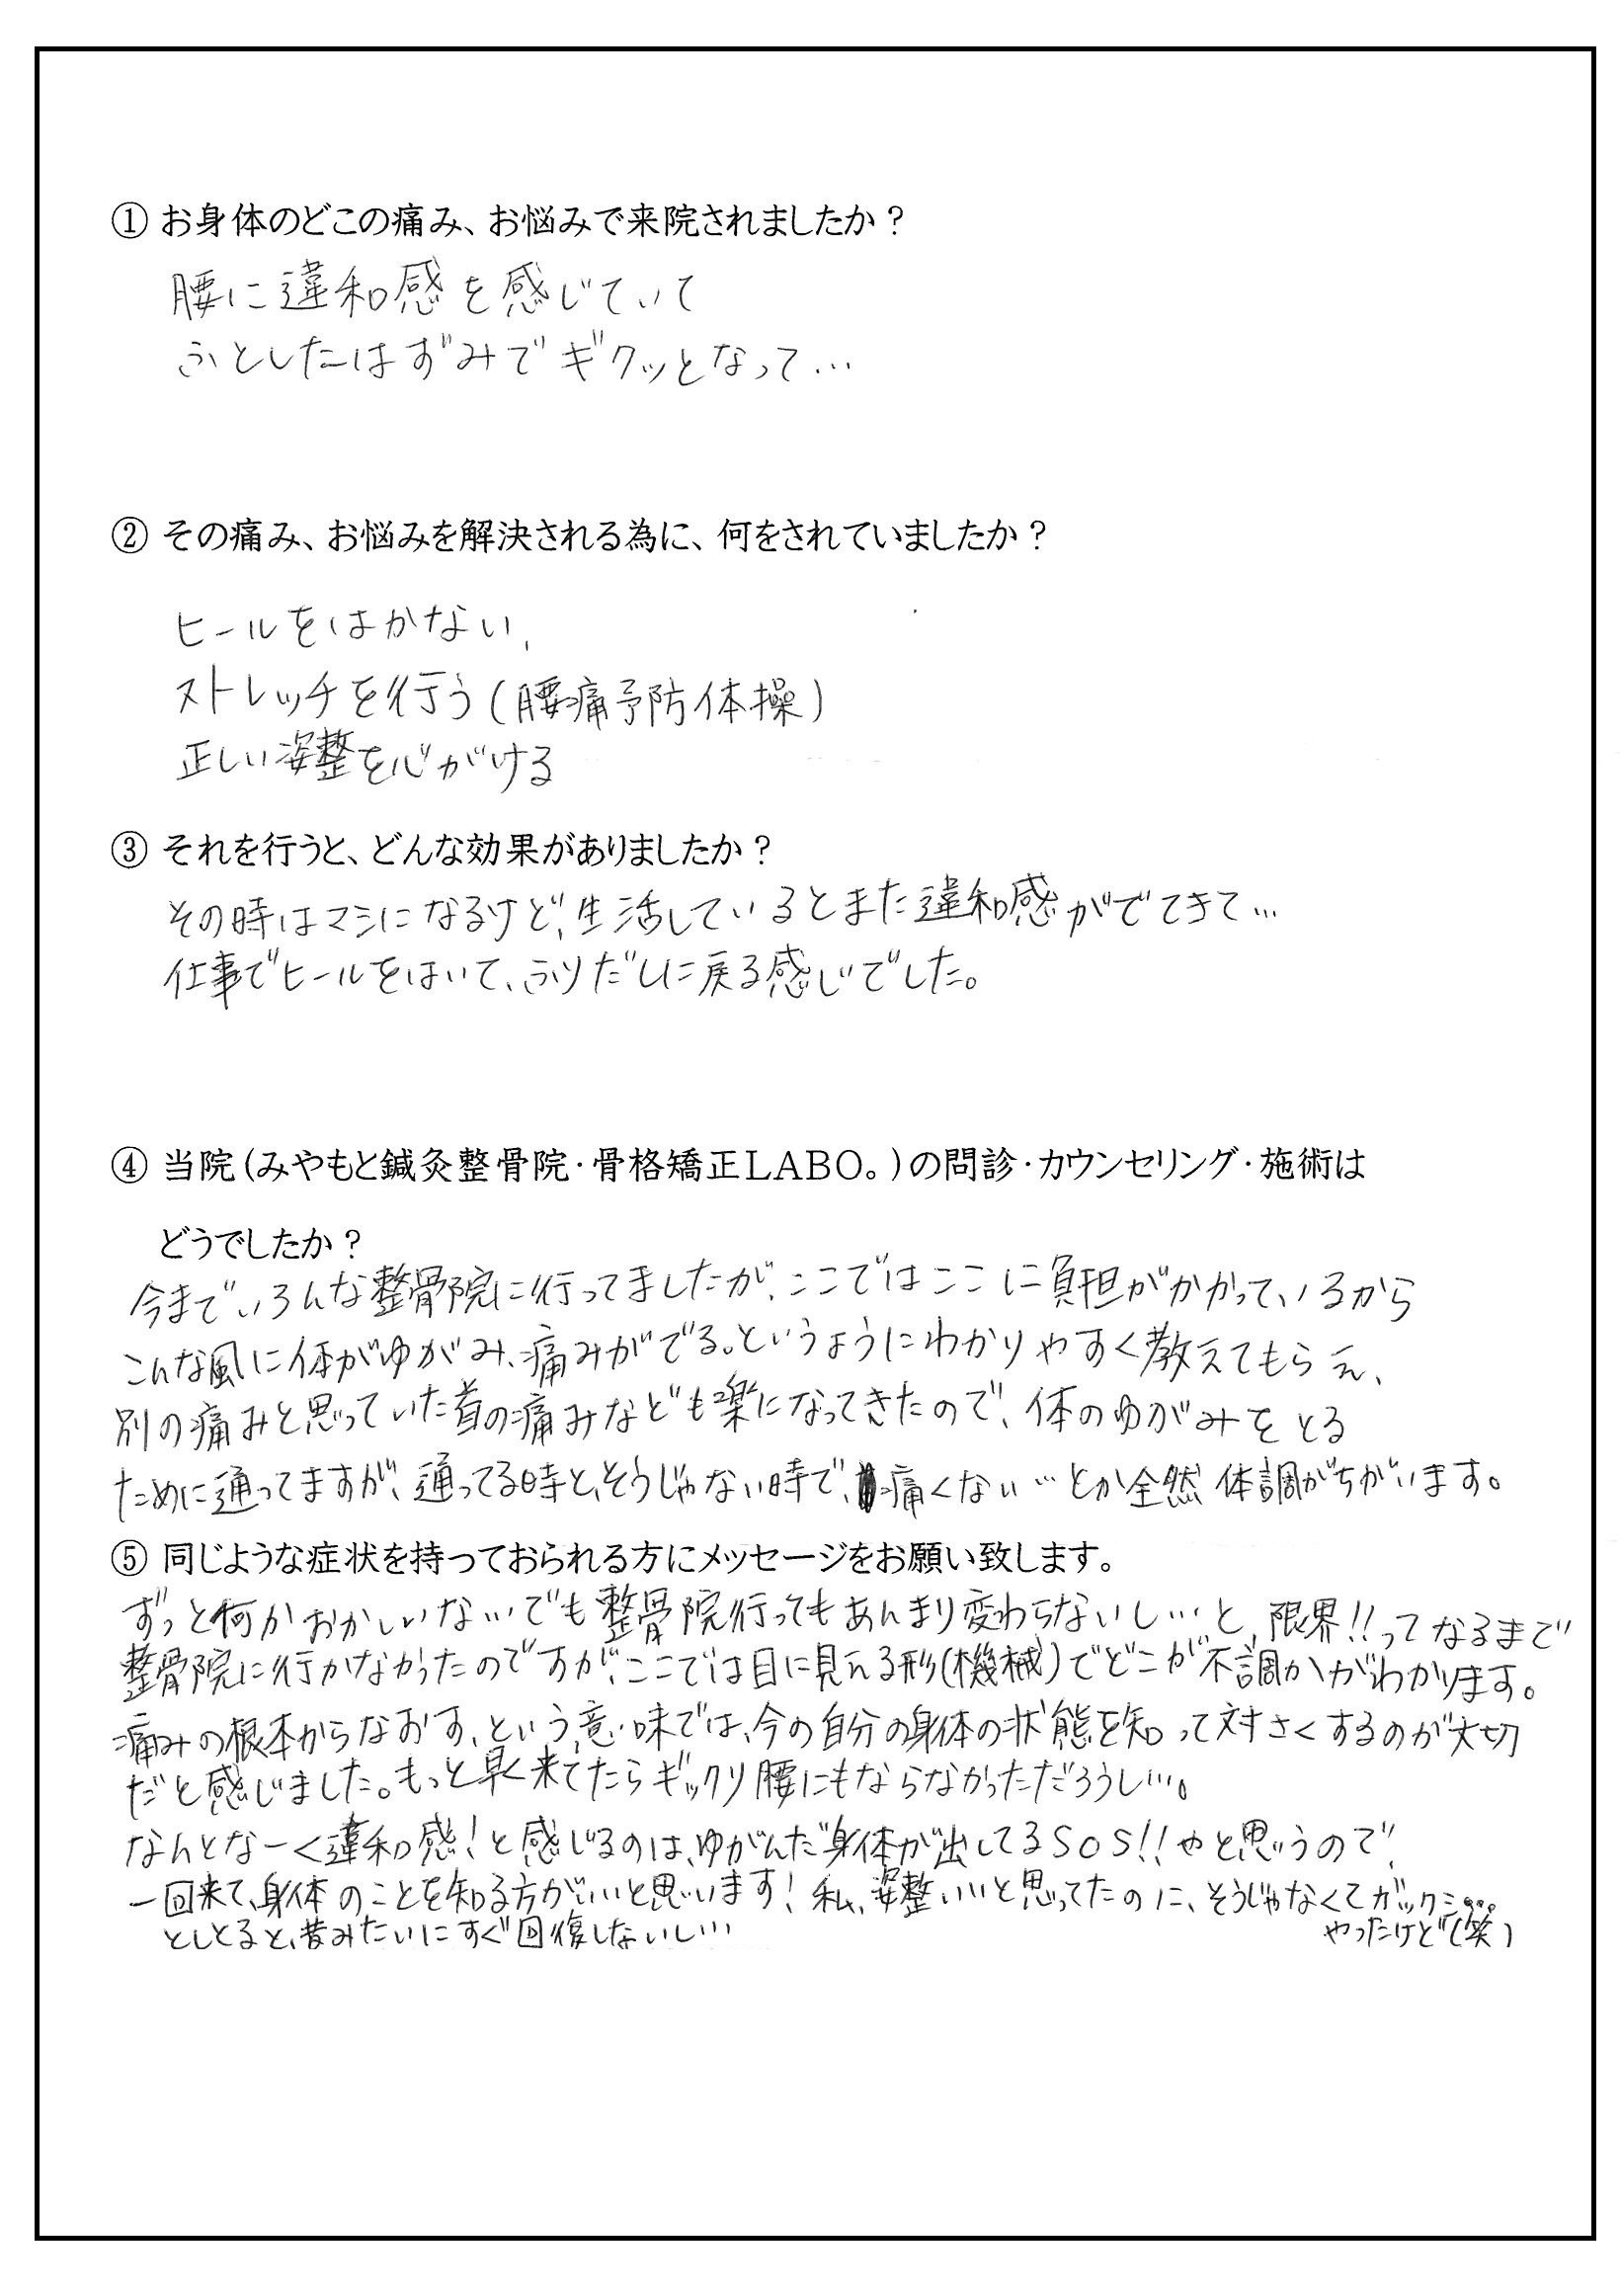 ① お身体のどこの痛み、お悩みで来院されましたか？
腰に違和感を感じていて
ふとしたはずみでギクッとなって…
② その痛み、お悩みを解決される為に、何をされていましたか？
ヒールをはかない、
ストレッチを行う(腰痛予防体操)
正しい姿整を心がける
③ それを行うと、どんな効果がありましたか？
その時はマシになるけど、生活しているとまた違和感がでてきて…
仕事でヒールをはいて、ふりだしに戻る感じでした。
④ 当院(みやもと鍼灸整骨院・骨格矯正LABO。)の問診・カウンセリング・施術は
どうでしたか？
今までいろんな整骨院に行ってましたが、ここではここに負担がかかっているから
こんな風に体がゆがみ、痛みがでる。というようにわかりやすく教えてもらえ、
別の痛みと思っていた首の痛みなども楽になってきたので、体のゆがみをとる
ために通ってますが、通ってる時と、そうじゃない時で、痛くない…とか全然体調がちがいます。
⑤ 同じような症状を持っておられる方にメッセージをお願い致します。
ずっと何かおかしいな…でも整骨院行ってもあんまり変わらないし…と、限界!!ってなるまで
整骨院に行かなかったのですが、ここでは目に見える形(機械)でどこが不調かがわかります。
痛みの根本からなおす、という意味では、今の自分の身体の状態を知って対さくするのが大切
だと感じました。もっと早く来てたらギックリ腰にもならなかっただろうし…。
なんとなーく違和感!と感じるのは、ゆがんだ身体が出してるSOS!!やと思うので、
一回来て、身体のことを知る方がいいと思います!私、姿整いいと思ってたのに、そうじゃなくてガックシ…。
としとると、昔みたいにすぐ回復しないし…
やったけど(笑)